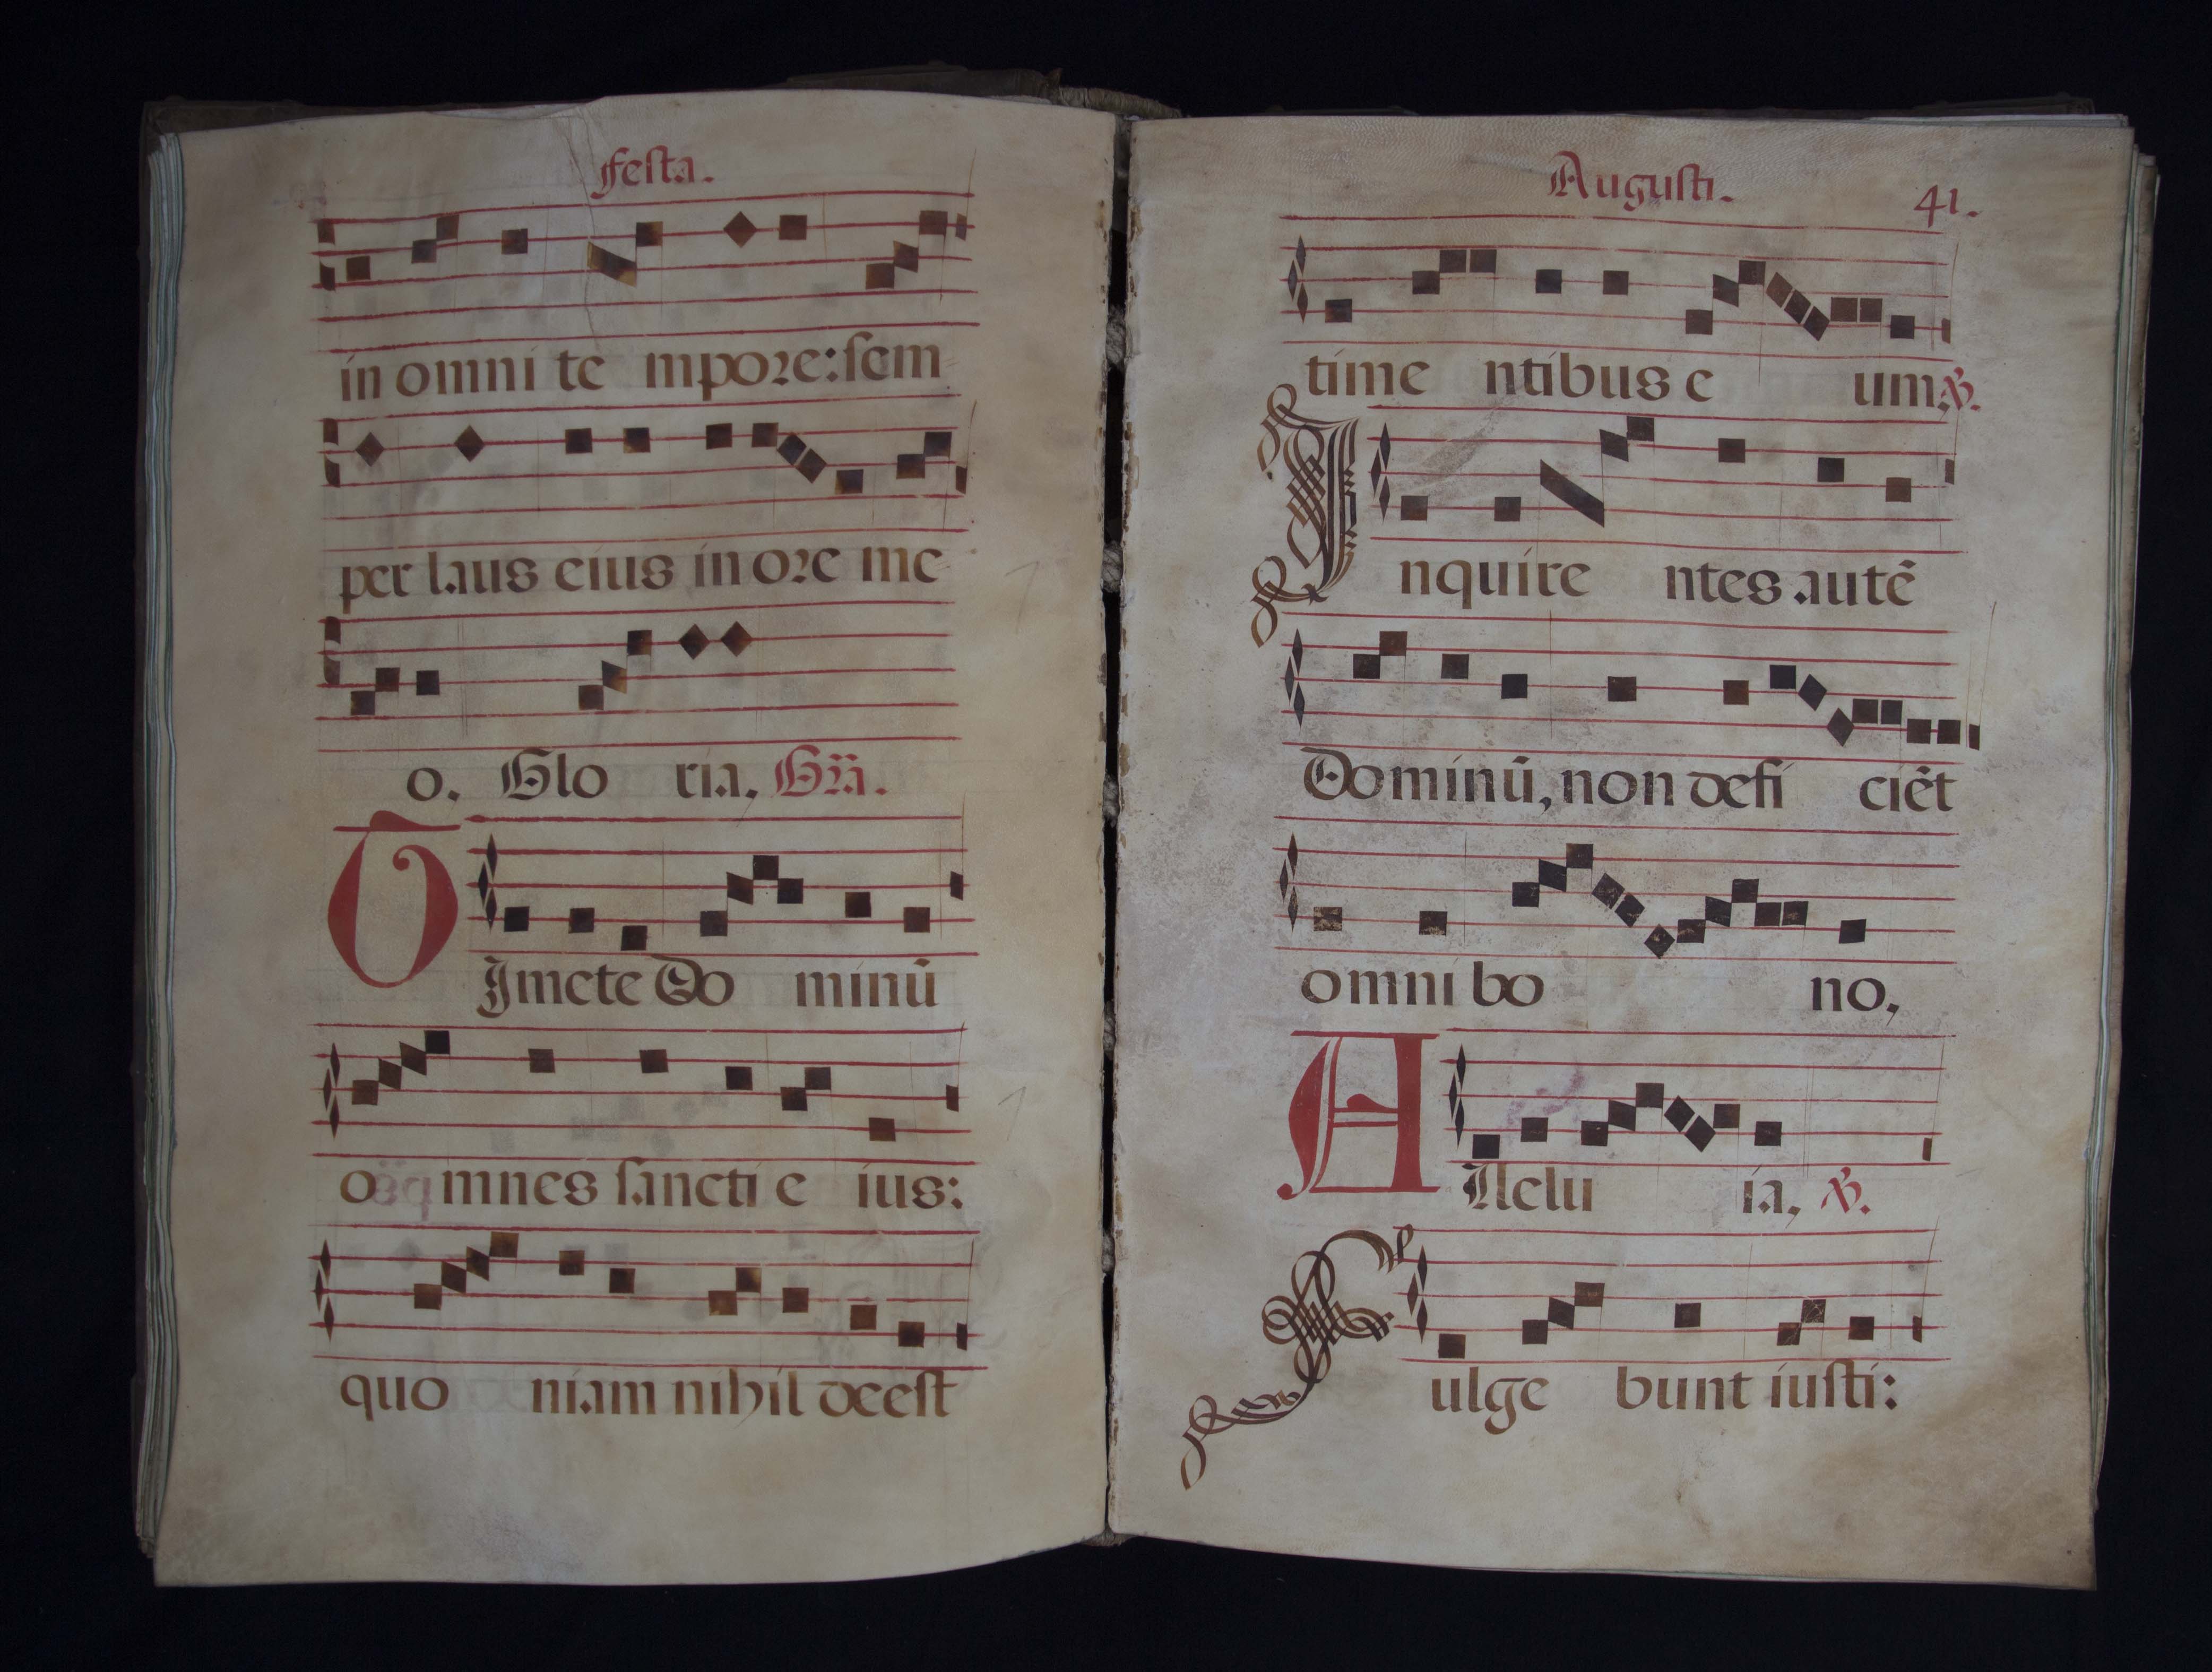 Festa.
in omni te mpore: sem
per laus eius in ore me
o. Glo ria. Gr̃a.
Timete Do minũ
o mnes sancti e ius:
quo niam nihil deest
Augusti. 41.
time ntibus e um. ℣.
Inquire ntes autẽ
Dominũ, non defi ciẽt
omni bo no,
Allelu ia, ℣.
Fulge bunt iusti: